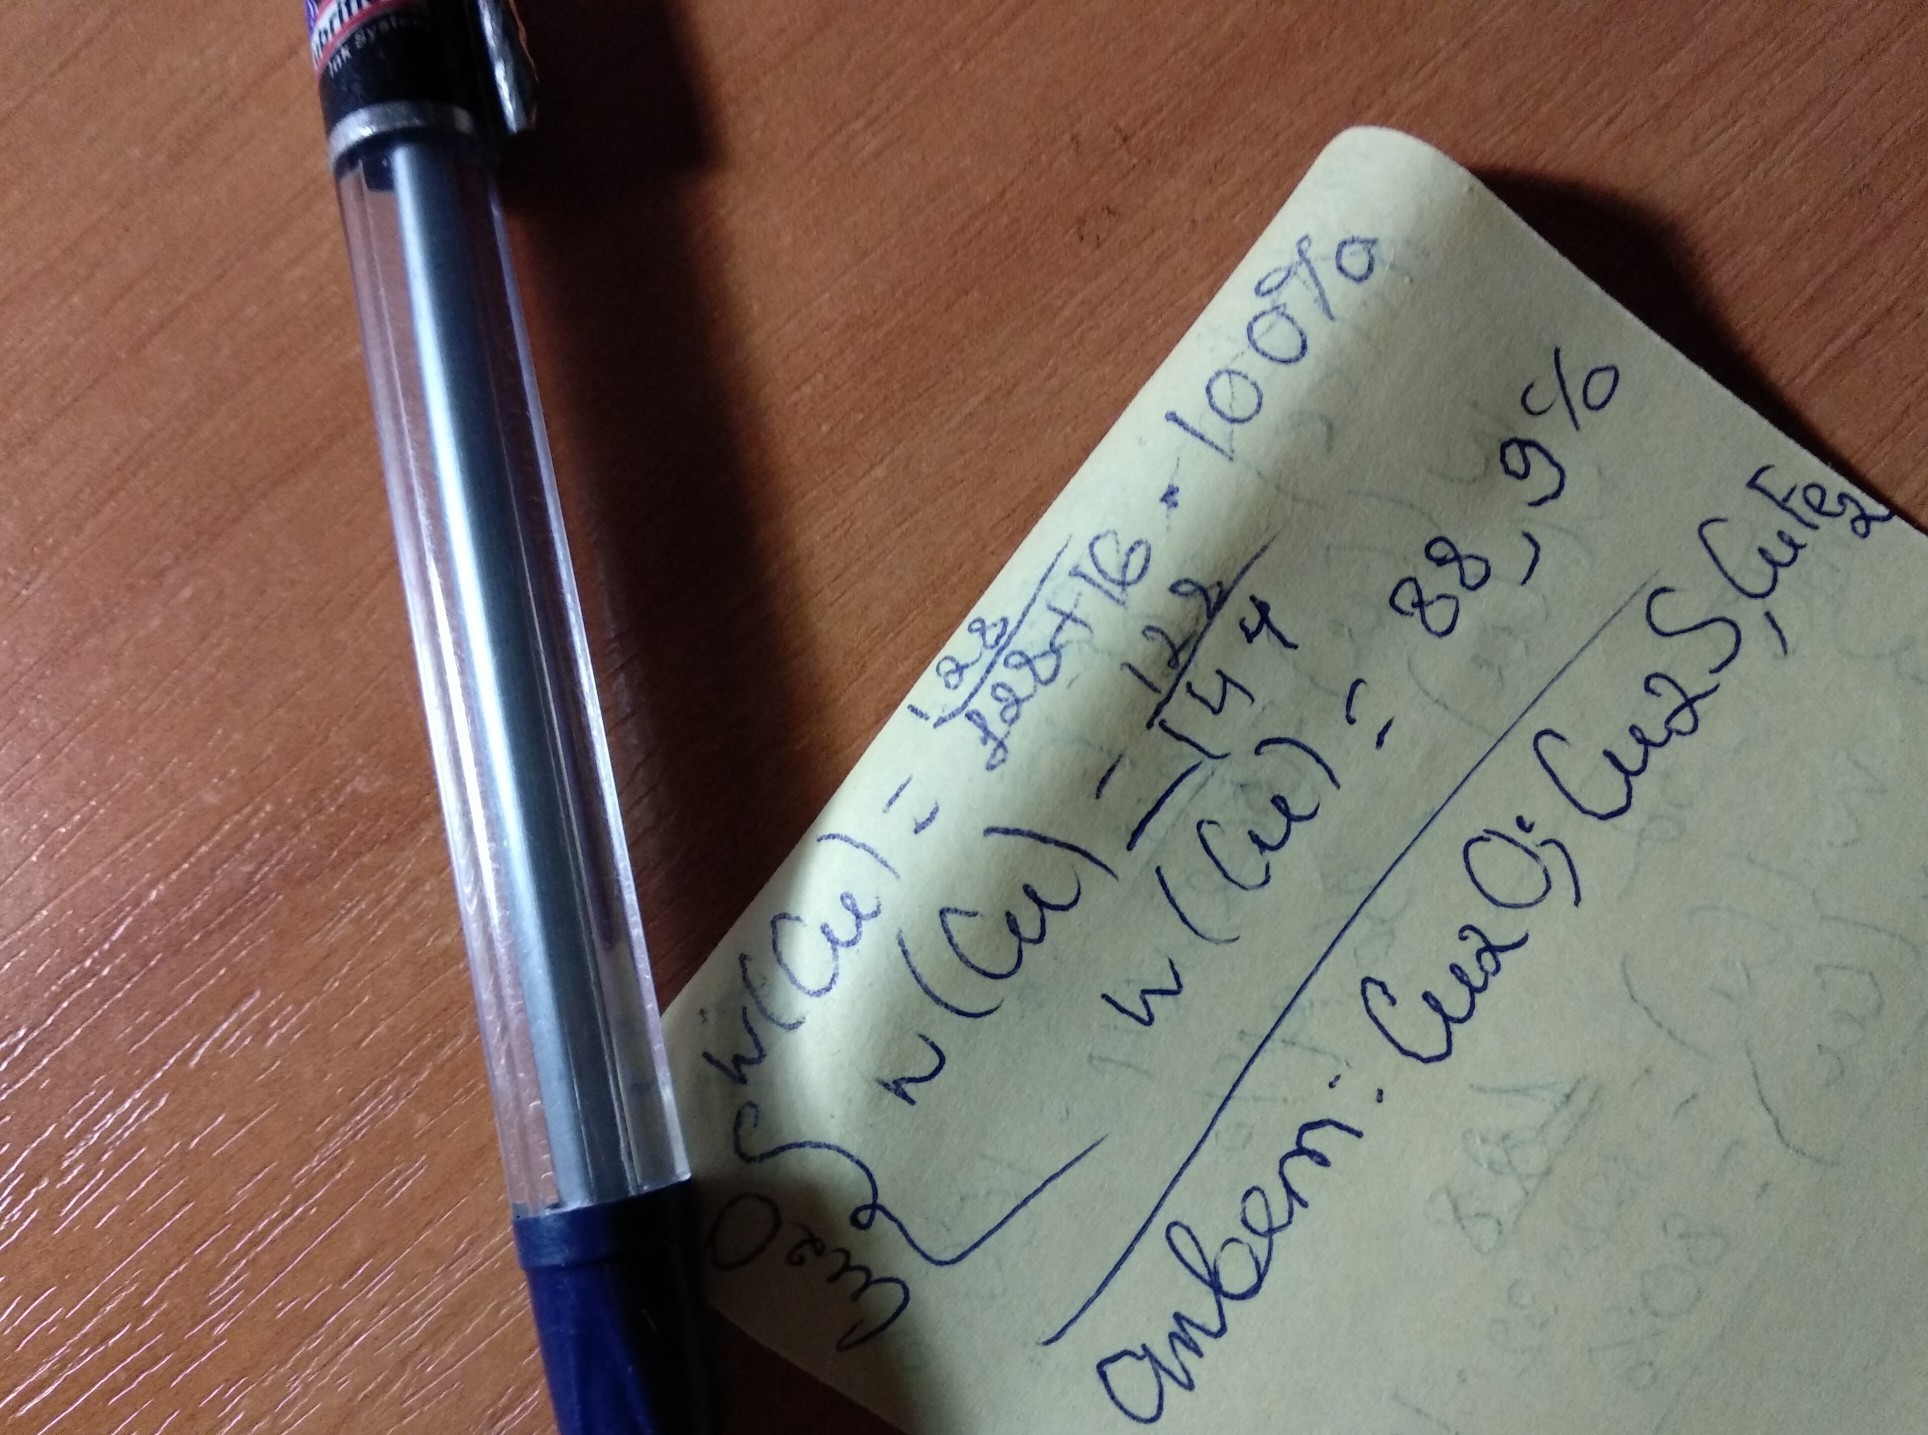 Ink System
Cu₂O
w(Cu) = 128/128+16 · 100%
w(Cu) = 122/144
w(Cu) = 88,9%
ответ: Cu2O; Cu2S, CuFe2